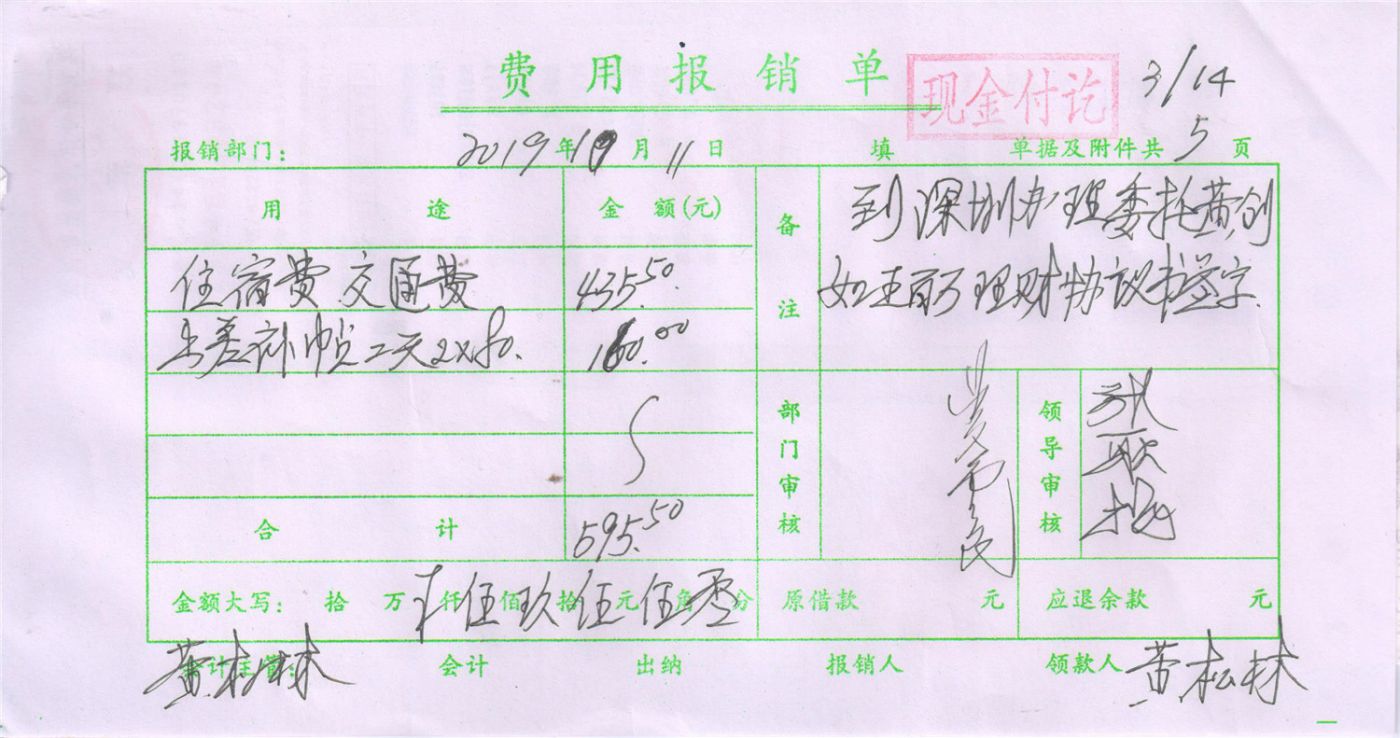 费用报销单
现金付讫
3/14
报销部门： 2019年10月11日 填 单据及附件共5页
用途 金额(元) 备注
到深圳办理委托黄创
如五百万理财协议书签字.
住宿费 交通费 435.50
出差补贴二天2x80. 160.00
部门审核 领导审核
合计 595.50
金额大写： 拾 万 仟伍佰玖拾伍元伍角零分 原借款 元 应退余款 元
会计主管： 会计 出纳 报销人 领款人
黄松林 黄松林